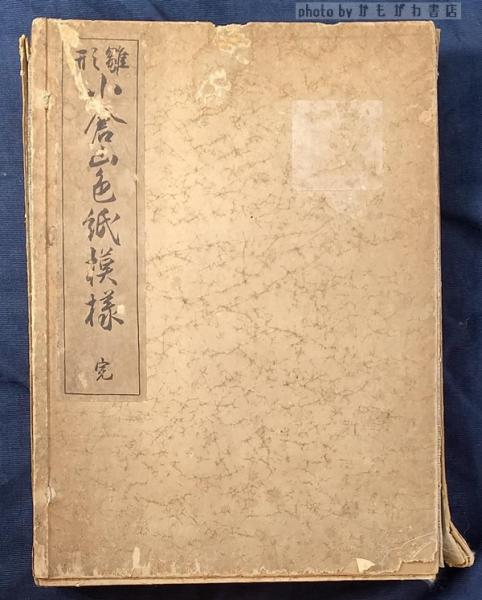 photo by かもがわ書店
雛形
小倉山色紙模様
完